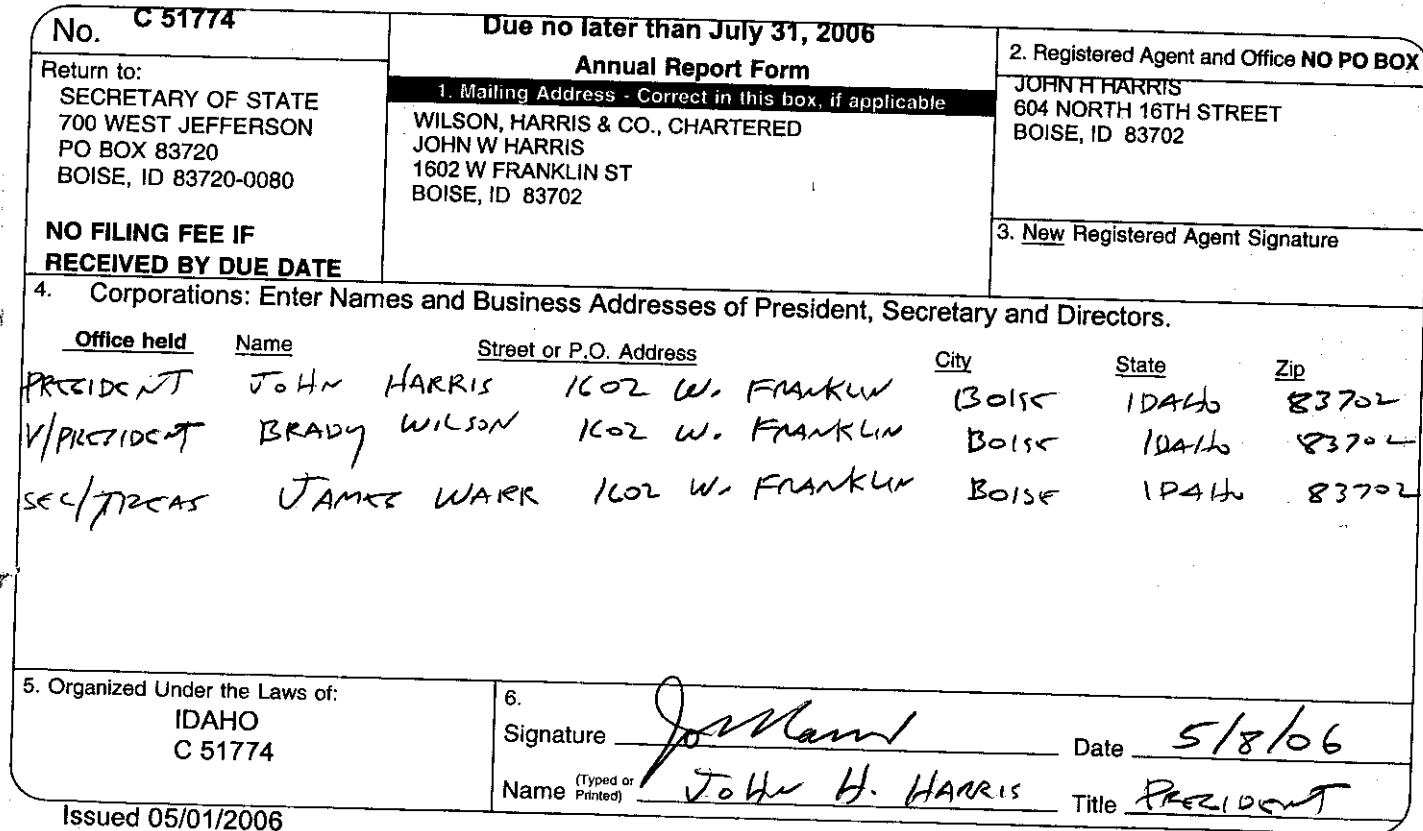 No. C 51774
Return to:
SECRETARY OF STATE
700 WEST JEFFERSON
PO BOX 83720
BOISE, ID 83720-0080
NO FILING FEE IF
RECEIVED BY DUE DATE
Due no later than July 31, 2006
Annual Report Form
1. Mailing Address - Correct in this box, if applicable
WILSON, HARRIS & CO., CHARTERED
JOHN W HARRIS
1602 W FRANKLIN ST
BOISE, ID 83702
2. Registered Agent and Office NO PO BOX
JOHN H HARRIS
604 NORTH 16TH STREET
BOISE, ID 83702
3. New Registered Agent Signature
4. Corporations: Enter Names and Business Addresses of President, Secretary and Directors.
Office held Name Street or P.O. Address City State Zip
PRESIDENT JOHN HARRIS 1602 W. FRANKLIN BOISE IDAHO 83702
V/PRESIDENT BRADY WILSON 1602 W. FRANKLIN BOISE IDAHO 83702
SEC/TREAS JAMES WARR 1602 W. FRANKLIN BOISE IDAHO 83702
5. Organized Under the Laws of:
IDAHO
C 51774
6.
Signature Date 5/8/06
Name (Typed or Printed) JOHN H. HARRIS Title PRESIDENT
Issued 05/01/2006